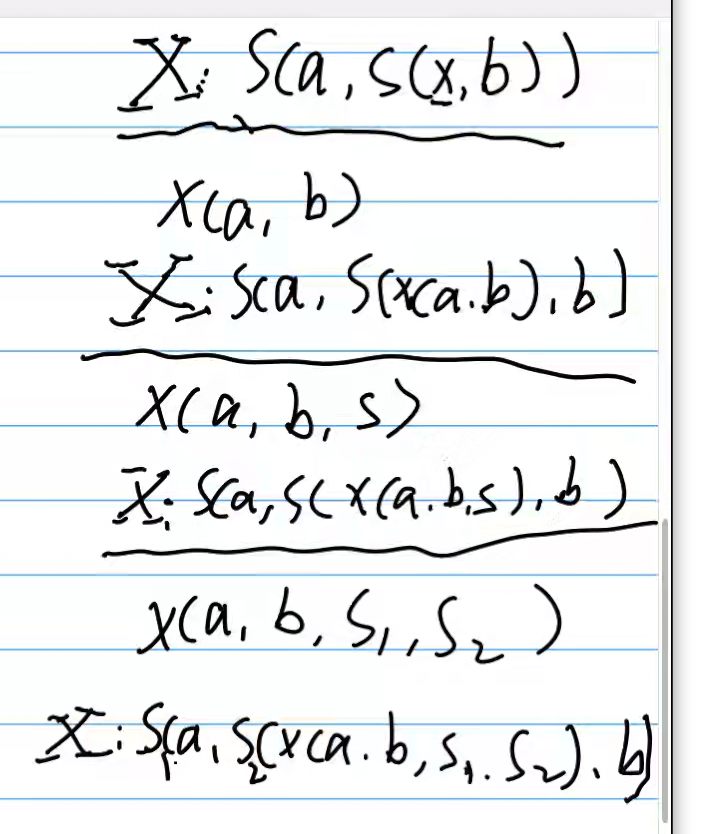 X: S(a, S(x, b))
x(a, b)
X: S(a, S(x(a.b), b)
x(a, b, s)
X: S(a, S(x(a.b,s), b)
x(a, b, S₁, S₂)
X: S₁(a, S₂(x(a.b, S₁. S₂), b)